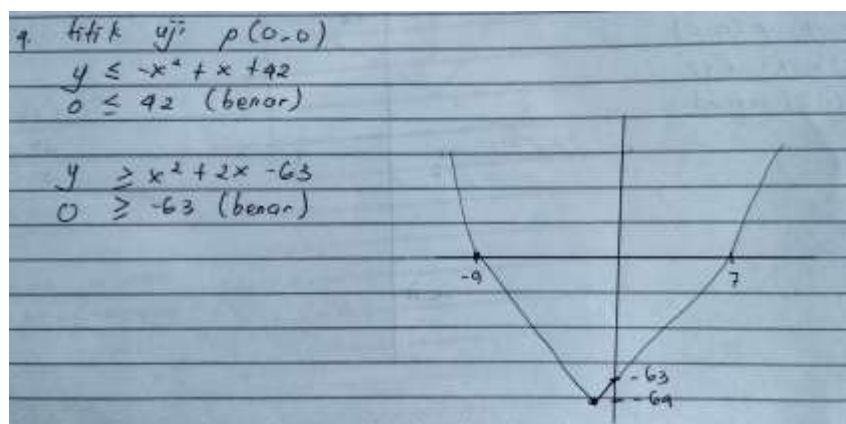 4. titik uji p(0,0)
y ≤ -x² + x + 42
0 ≤ 42 (benar)
y ≥ x² + 2x - 63
0 ≥ -63 (benar)
-9
7
-63
-64